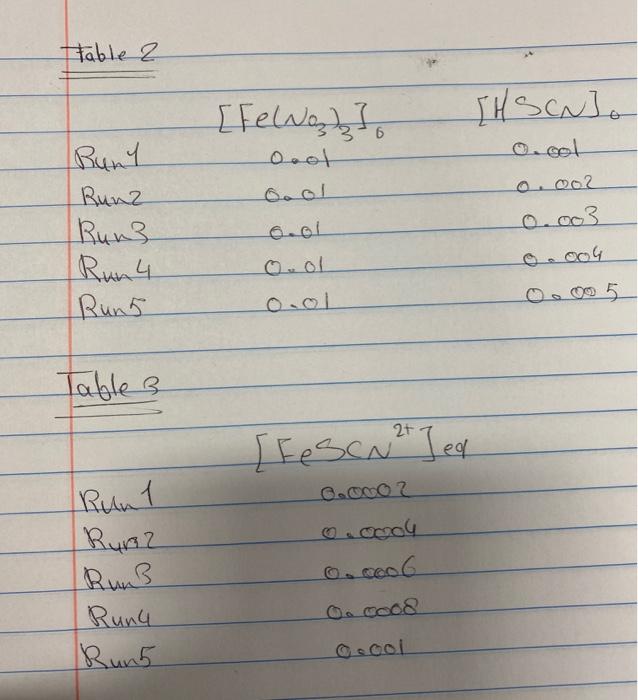 Table 2
[Fe(NO3)3]0 [HSCN]0
Run1 0.01 0.001
Run2 0.01 0.002
Run3 0.01 0.003
Run4 0.01 0.004
Run5 0.01 0.005
Table 3
[FeSCN2+]eq
Run1 0.0002
Run2 0.0004
Run3 0.0006
Run4 0.0008
Run5 0.001